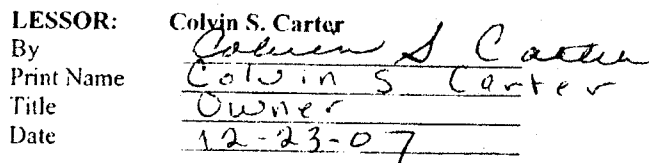 LESSOR: Colvin S. Carter
By Colvin S Carter
Print Name Colvin S Carter
Title Owner
Date 12-23-07